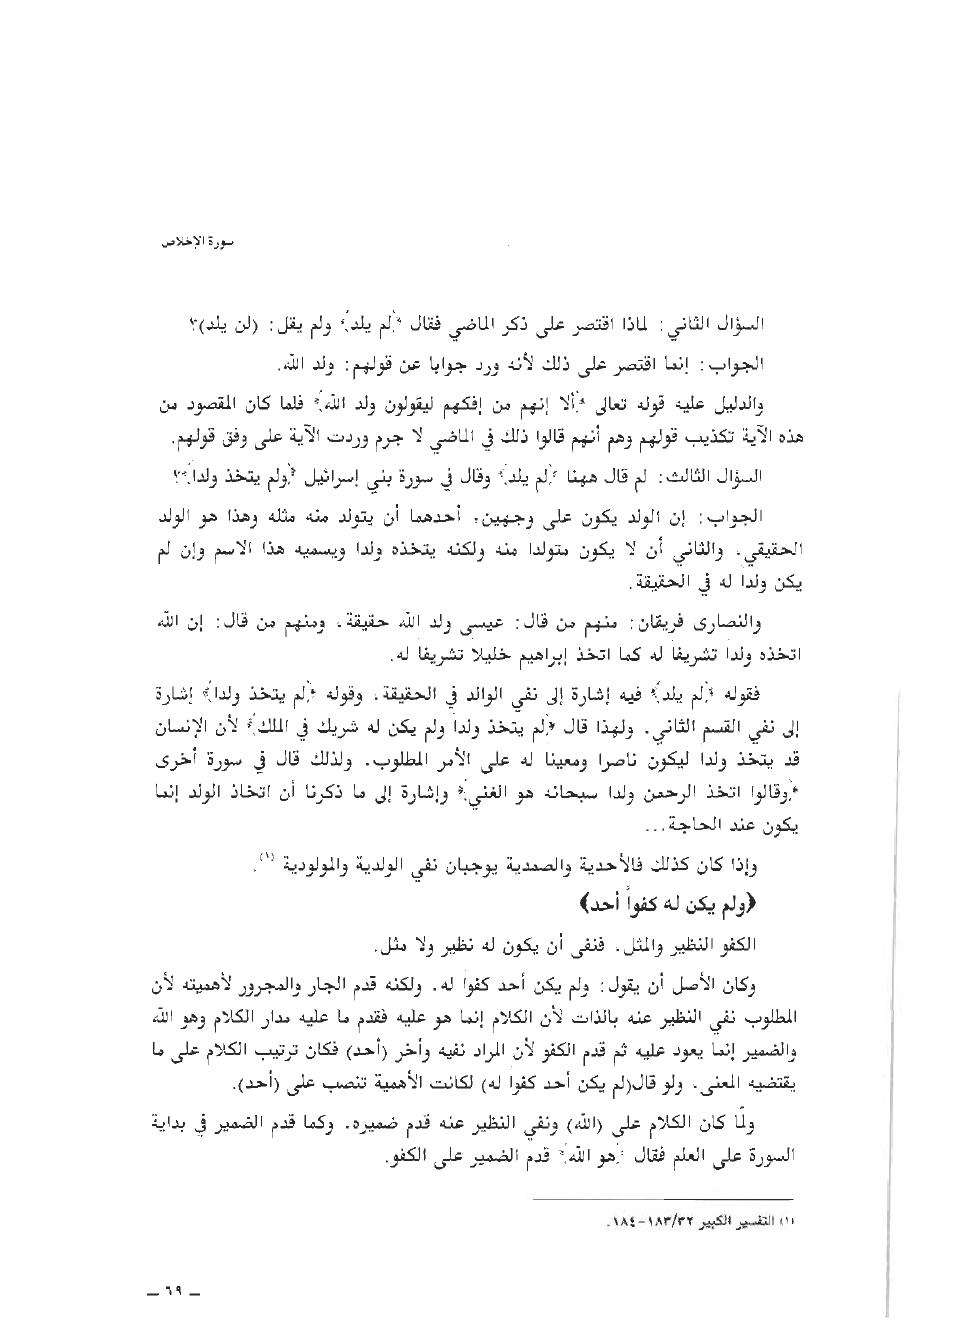 سورة الإخلاص
السؤال الثاني: لماذا اقتصر على ذكر الماضي فقال ﴿لم يلد﴾ ولم يقل: (لن يلد)؟
الجواب: إنما اقتصر على ذلك لأنه ورد جوابا عن قولهم: ولد الله.
والدليل عليه قوله تعالى ﴿ألا إنهم من إفكهم ليقولون ولد الله﴾ فلما كان المقصود من
هذه الآية تكذيب قولهم وهم أنهم قالوا ذلك في الماضي لا جرم وردت الآية على وفق قولهم.
السؤال الثالث: لم قال ههنا ﴿لم يلد﴾ وقال في سورة بني إسرائيل ﴿ولم يتخذ ولداً﴾؟
الجواب: إن الولد يكون على وجهين: أحدهما أن يتولد منه مثله وهذا هو الولد
الحقيقي. والثاني أن لا يكون متولدا منه ولكنه يتخذه ولدا ويسميه هذا الاسم وإن لم
يكن ولدا له في الحقيقة.
والنصارى فريقان: منهم من قال: عيسى ولد الله حقيقة، ومنهم من قال: إن الله
اتخذه ولدا تشريفا له كما اتخذ إبراهيم خليلا تشريفا له.
فقوله ﴿لم يلد﴾ فيه إشارة إلى نفي الوالد في الحقيقة، وقوله ﴿لم يتخذ ولدا﴾ إشارة
إلى نفي القسم الثاني. ولهذا قال ﴿لم يتخذ ولداً ولم يكن له شريك في الملك﴾ لأن الإنسان
قد يتخذ ولدا ليكون ناصرا ومعينا له على الأمر المطلوب. ولذلك قال في سورة أخرى
﴿وقالوا اتخذ الرحمن ولدا سبحانه هو الغني﴾ وإشارة إلى ما ذكرنا أن اتخاذ الولد إنما
يكون عند الحاجة...
وإذا كان كذلك فالأحدية والصمدية يوجبان نفي الولدية والمولودية (١).
﴿ولم يكن له كفواً أحد﴾
الكفو النظير والمثل. فنفى أن يكون له نظير ولا مثل.
وكان الأصل أن يقول: ولم يكن أحد كفواً له. ولكنه قدم الجار والمجرور لأهميته لأن
المطلوب نفي النظير عنه بالذات لأن الكلام إنما هو عليه فقدم ما عليه مدار الكلام وهو الله
والضمير إنما يعود عليه ثم قدم الكفو لأن المراد نفيه وأخر (أحد) فكان ترتيب الكلام على ما
يقتضيه المعنى. ولو قال(لم يكن أحد كفواً له) لكانت الأهمية تنصب على (أحد).
ولمّا كان الكلام على (الله) ونفي النظير عنه قدم ضميره. وكما قدم الضمير في بداية
السورة على العلم فقال ﴿هو الله﴾ قدم الضمير على الكفو.
(١) التفسير الكبير ١٨٣/٣٢-١٨٤.
– ٦٩ –